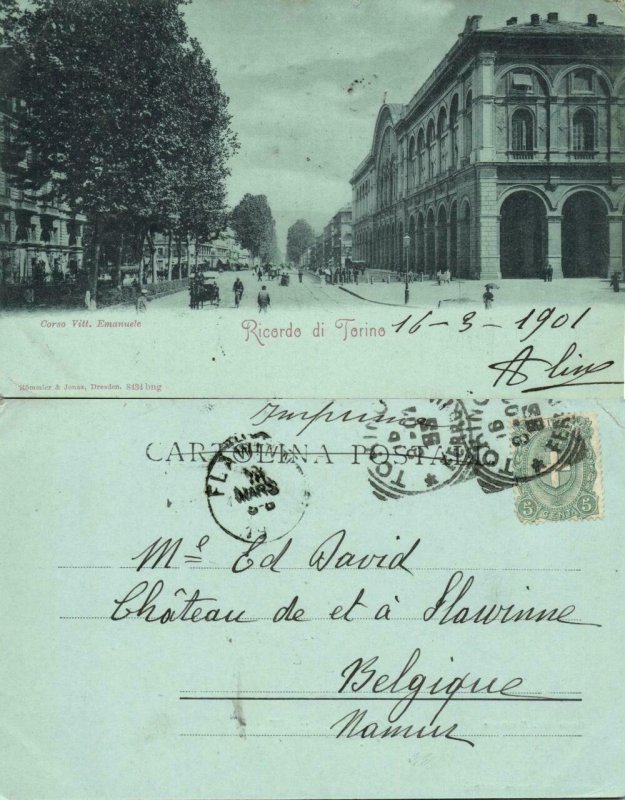 Corso Vitt. Emanuele
Ricordo di Torino 16-3-1901
Römmler & Jonas, Dresden. 8434 bng
Imprimé
CARTOLINA POSTALE
FLAWINNE
MARS
TORINO
TORINO
FERROVIA
5 CENT. 5
Me Ed David
Château de et à Flawinne
Belgique
Namur